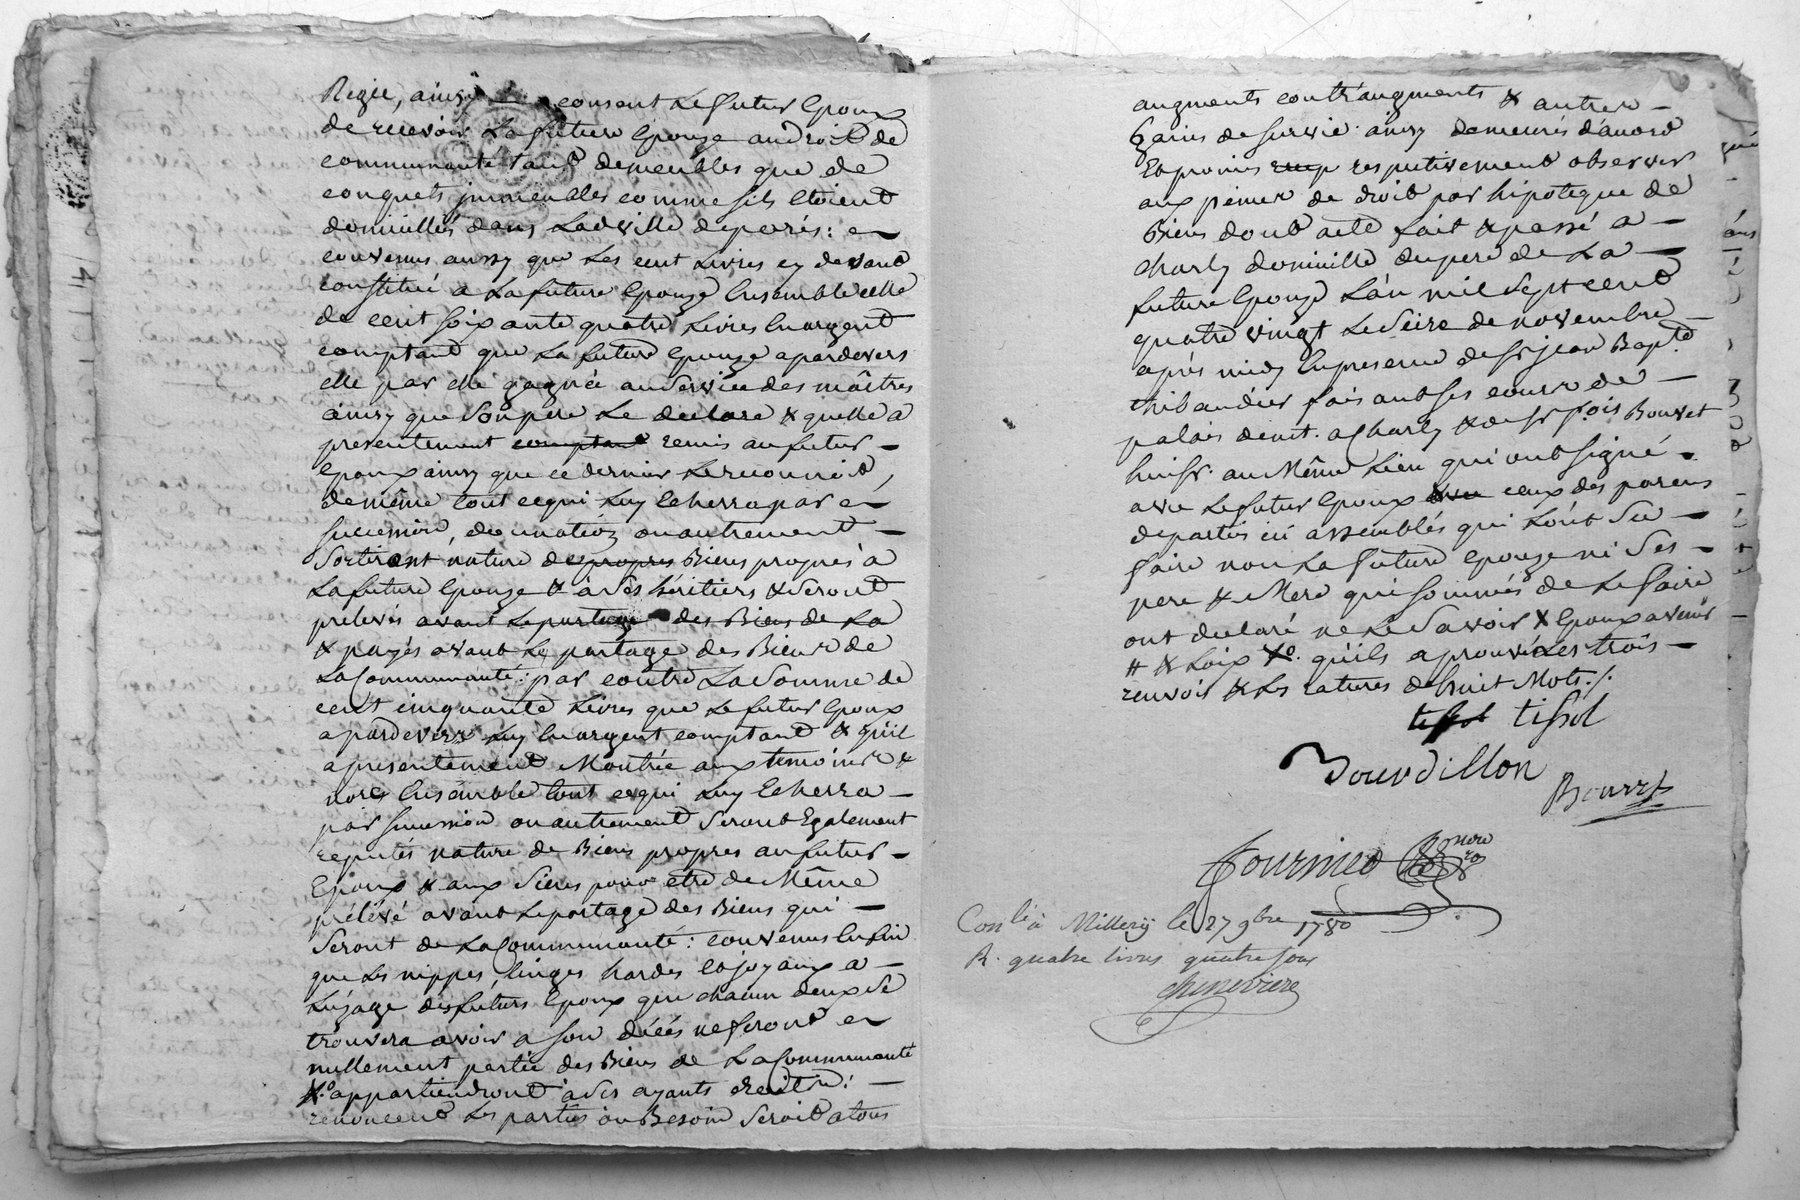 Régie, ainsy consent Le futur Epoux
de recevoir La future Epouze au droit de
communauté tant de meubles que de
conquets immeubles comme s'ils Etoient
domiciliés dans Lad. ville de paris: en
convenus aussy que Les cent Livres cy devant
constitué a La future Epouze Ensemble celle
de cent soixante quatre Livres En argent
comptant que La future Epouze a pardevers
elle par elle gagnée au Service des maîtres
ainsy que Son pere Le declare & quelle a
presentement comptant remis au futur -
Epoux ainsy que ce dernier Le reconnoit,
de même tout ce qui Luy Echerra par en
succession, donnation ou autrement -
Sortiront nature de propres Biens propres à
La future Epouze & à Ses héritiers & Seront
prélevés avant Le partage des Biens de La
& payés avant Le partage des Biens de
La Communauté: par contre La Somme de
cent cinquante Livres que Le futur Epoux
a pardevers Luy En argent comptant & qu'il
a presentement Montrée aux temoins &
nores Ensemble tout ce qui Luy Echerra -
par succession ou autrement Seront Egalement
reputés nature de Biens propres au futur -
Epoux & aux Siens pour être de Même
prélevé avant Le partage des Biens qui -
Seront de La Communauté: convenus Enfin
que Les nippes linges hardes et joyaux a -
L'uzage des futurs Epoux que chacun deux Se
trouvera avoir a Son décés ne feront en
nullement partie des Biens de La Communauté
& appartiendront à Ses ayants droit: -
renoncent Les parties ou Besoin Seroit a tous
augments contr'augments & autres -
Gains de survie ainsy demeurés d'accord
Et promis resp respectivement observer
aux peines de droit par hipoteque de
Biens dont acte fait & passé a -
Charly domicille du pere de La -
future Epouze L'an mil Sept cent
quatre vingt Le Seize de novembre -
après midy En presence de Sr jean Bapt.e
thibaudier faisant Ses cours de -
palais demt. a Charly & de Sr f.ois Bouvet
huissr. au Même Lieu qui ont signé -
avec Le futur Epoux avec ceux des parens
de parties ici assemblés qui L'ont Su -
faire non La future Epouze ni Ses -
pere & Mere qui sommés de Le faire
ont declaré ne Le Savoir & Epoux avenir
# & Loix & qu'ils approuvé Les trois -
renvois & Les ratures de huit Mots./.
tissot tissot
Bourdillon
Bouvet
Fournier
Con.lé à Millery le 27 9bre 1780
R. quatre livres quatre sous
Cheneviere